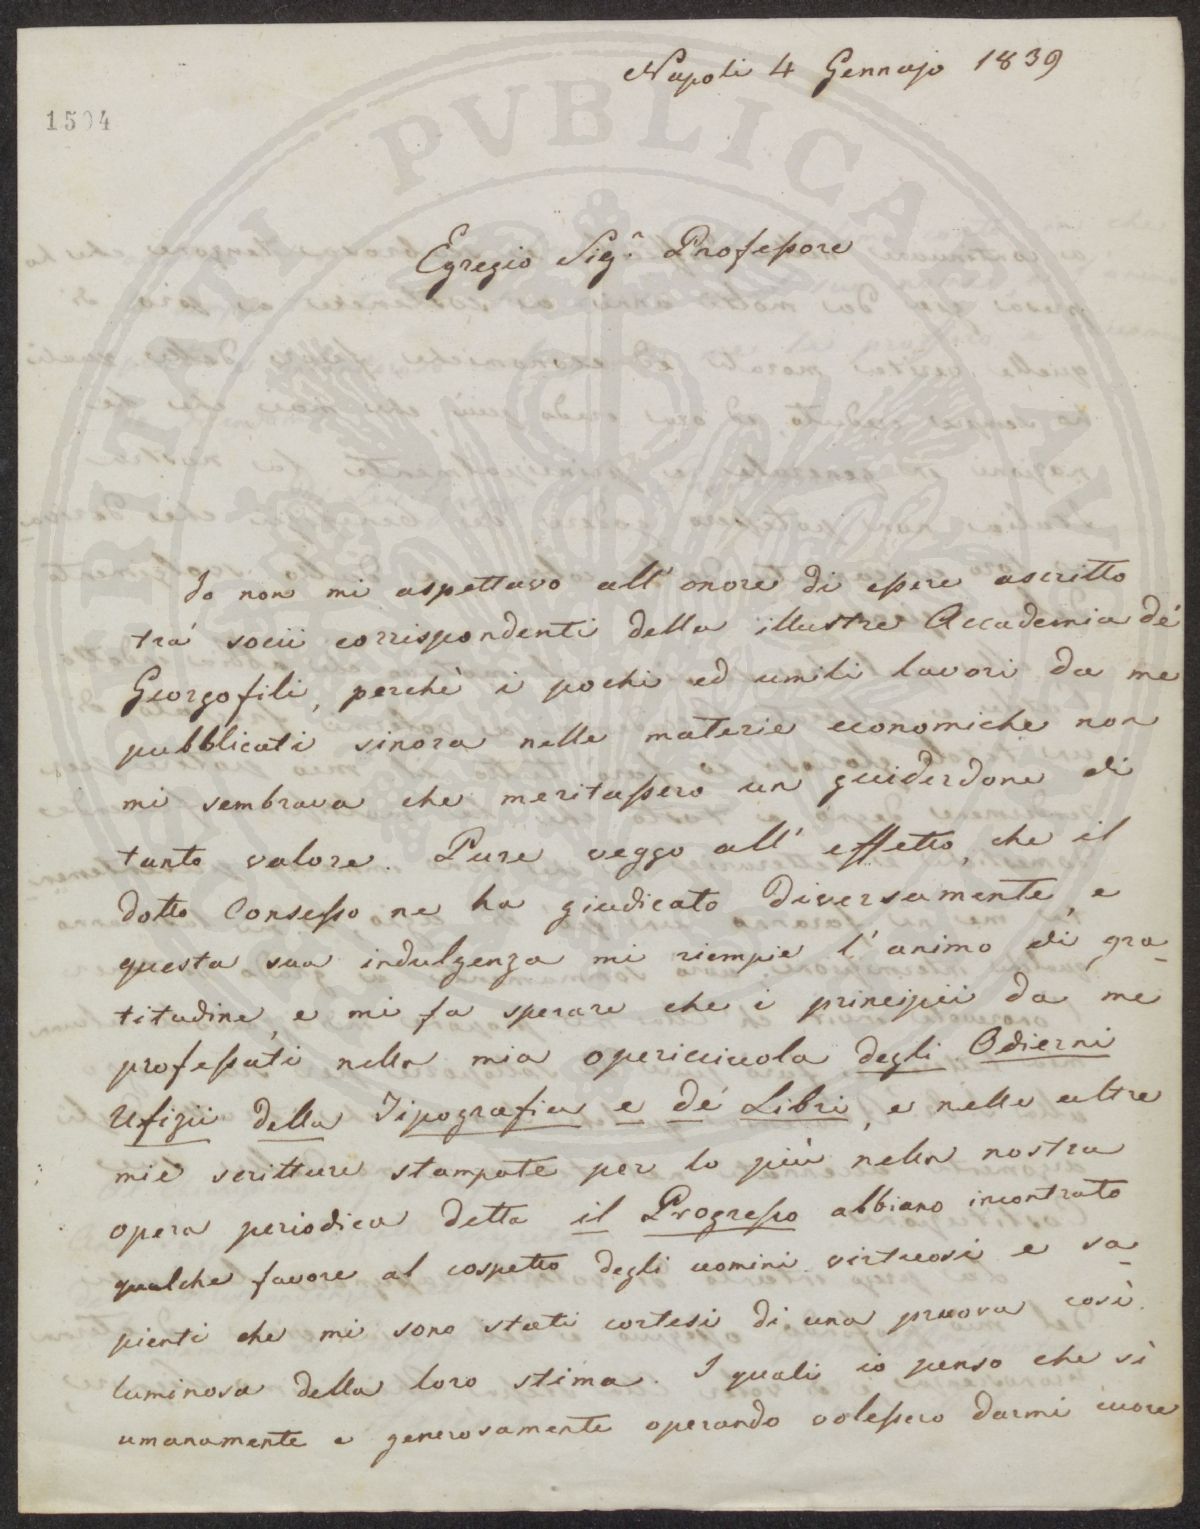 Napoli 4 Gennajo 1839
1504
PVBLICAE
Egregio Sig.r Professore
Io non mi aspettavo all' onore di essere ascritto
tra' socii corrispondenti della illustre Accademia de'
Georgofili, perchè i pochi ed umili lavori da me
pubblicati sinora nelle materie economiche non
mi sembrava che meritassero un guiderdone di
tanto valore. Pure veggo all' effetto, che il
dotto Consesso ne ha giudicato diversamente, e
questa sua indulgenza mi riempie l' animo di gra-
titudine, e mi fa sperare che i principii da me
professati nella mia opericciuola degli Odierni
Ufizii della Tipografia e de' Libri, e nelle altre
mie scritture stampate per lo più nella nostra
opera periodica detta il Progresso abbiano incontrato
qualche favore al cospetto degli uomini virtuosi e sa-
pienti che mi sono stati cortesi di una pruova così
luminosa della loro stima. I quali io penso che sì
umanamente e generosamente operando volessero darmi cuore